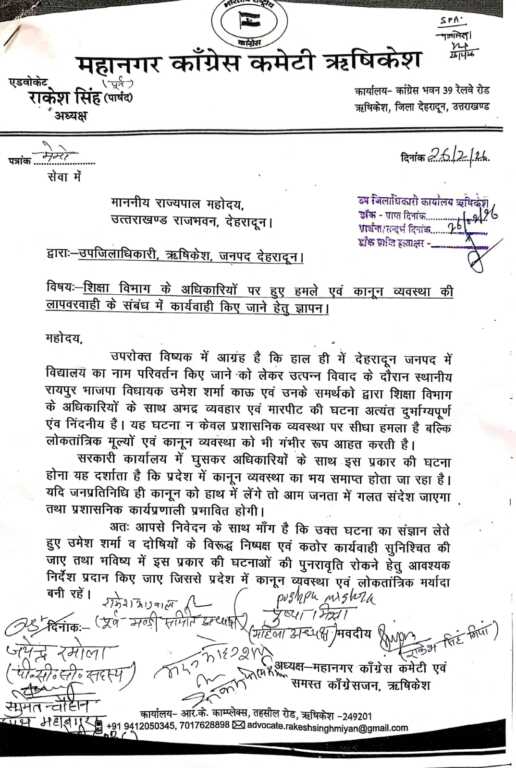 भारतीय राष्ट्रीय
काँग्रेस
SPA-
महानगर काँग्रेस कमेटी ऋषिकेश
एडवोकेट (पूर्व)
राकेश सिंह (पार्षद)
अध्यक्ष
कार्यालय- कांग्रेस भवन 39 रेलवे रोड
ऋषिकेश, जिला देहरादून, उत्तराखण्ड
पत्रांक मेमो
दिनांक 26/2/26
सेवा में
माननीय राज्यपाल महोदय,
उत्तराखण्ड राजभवन, देहरादून।
उप जिलाधिकारी कार्यालय ऋषिकेश
डाक - प्राप्त दिनांक 26/02/26
दिनांक 26
द्वाराः-उपजिलाधिकारी, ऋषिकेश, जनपद देहरादून।
विषयः-शिक्षा विभाग के अधिकारियों पर हुए हमले एवं कानून व्यवस्था की
लापवरवाही के संबंध में कार्यवाही किए जाने हेतु ज्ञापन।
महोदय,
उपरोक्त विष्यक में आग्रंह है कि हाल ही में देहरादून जनपद में
विद्यालय का नाम परिवर्तन किए जाने को लेकर उत्पन्न विवाद के दौरान स्थानीय
रायपुर भाजपा विधायक उमेश शर्मा काऊ एवं उनके समर्थको द्वारा शिक्षा विभाग
के अधिकारियों के साथ अभद्र व्यवहार एवं मारपीट की घटना अत्यंत दुर्भाग्यपूर्ण
एंव निंदनीय है। यह घटना न केवल प्रशासनिक व्यवस्था पर सीधा हमला है बल्कि
लोकतांत्रिक मूल्यों एवं कानून व्यवस्था को भी गंभीर रूप आहत करती है।
सरकारी कार्यालय में घुसकर अधिकारियों के साथ इस प्रकार की घटना
होना यह दर्शाता है कि प्रदेश में कानून व्यवस्था का भय समाप्त होता जा रहा है।
यदि जनप्रतिनिधि ही कानून को हाथ में लेंगे तो आम जनता में गलत संदेश जाएगा
तथा प्रशासनिक कार्यप्रणाली प्रभावित होगी।
अतः आपसे निवेदन के साथ माँग है कि उक्त घटना का संज्ञान लेते
हुए उमेश शर्मा व दोषियों के विरूद्ध निष्पक्ष एवं कठोर कार्यवाही सुनिश्चित की
जाए तथा भविष्य में इस प्रकार की घटनाओं की पुनरावृति रोकने हेतु आवश्यक
निर्देश प्रदान किए जाए जिससे प्रदेश में कानून व्यवस्था एवं लोकतांत्रिक मर्यादा
बनी रहें।
Pushpa Mishra
पुष्पा मिश्रा
दिनांकः- (पूर्व मण्डी समिति अध्यक्ष) (महिला अध्यक्ष) भवदीय
(राकेश सिंह मियां)
जयेन्द्र रमोला
(पी०सी०सी० सदस्य)
अध्यक्ष-महानगर काँग्रेस कमेटी एवं
समस्त काँग्रेसजन, ऋषिकेश
चौहान
कार्यालय- आर.के. काम्प्लेक्स, तहसील रोड, ऋषिकेश -249201
+91 9412050345, 7017628898 advocate.rakeshsinghmiyan@gmail.com